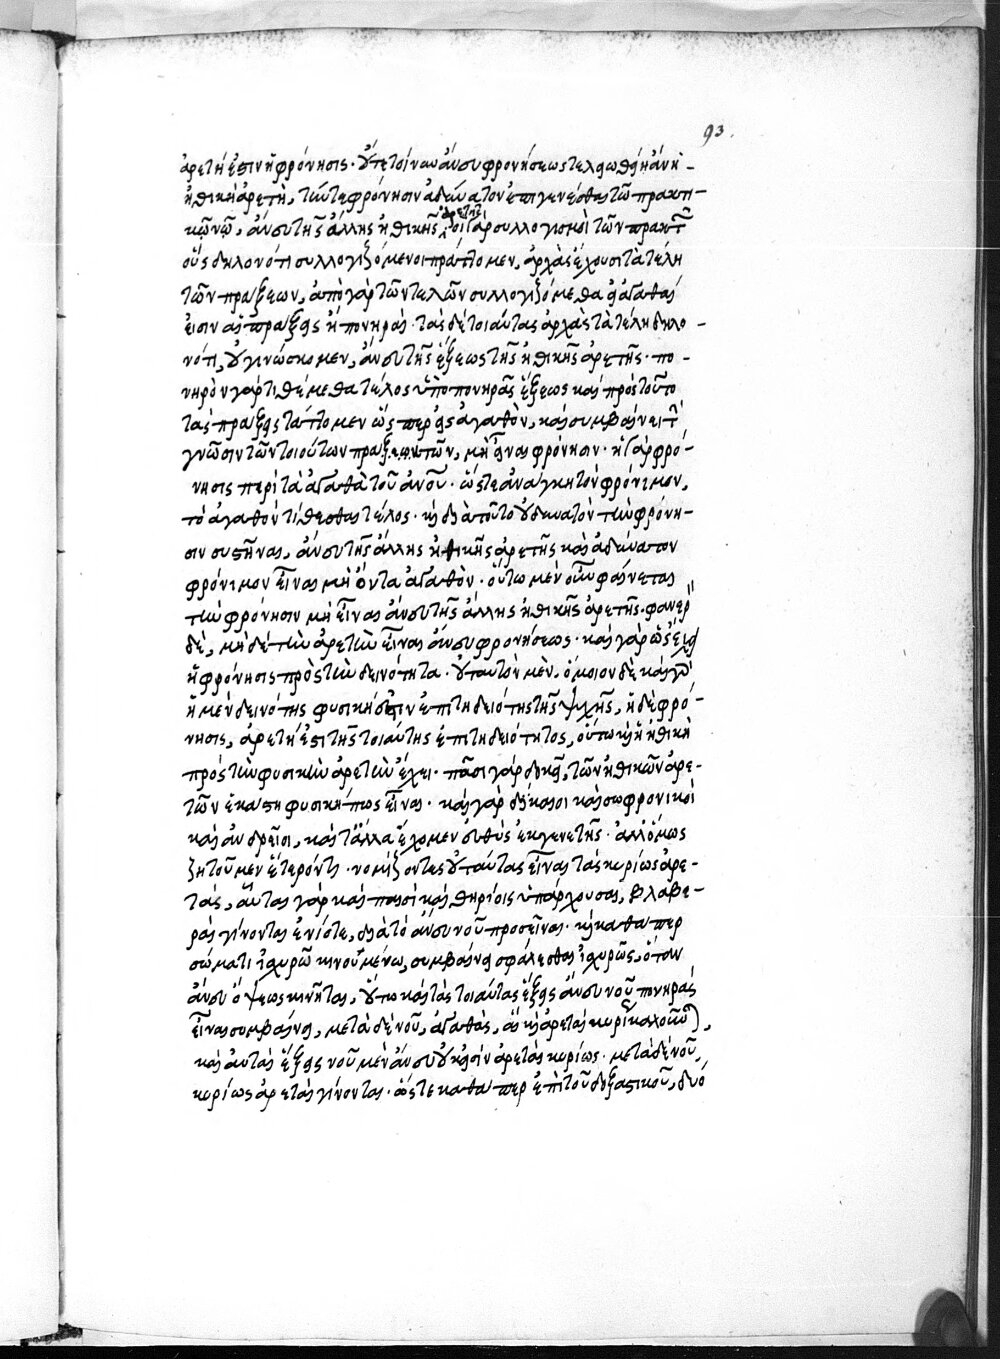 93.
ἀρετή ἐστιν ἡ φρόνησις. οὔτε τοίνυν ἄνευ φρονήσεως τελειωθείη ἂν ἡ
ἠθικὴ ἀρετὴ, τήν τε φρόνησιν ἀδύνατον ἐπιγενέσθαι τῶ πρακτι-
κῷ νῷ, ἄνευ τῆς ἄλλης ἠθικῆς ἀρετῆς. οἱ γὰρ συλλογισμοὶ τῶν πρακτ
οὓς δηλονότι συλλογιζόμενοι πράττομεν, ἀρχὰς ἔχουσι τὰ τέλη
τῶν πράξεων, ἀπὸ γὰρ τῶν τελῶν συλλογιζόμεθα εἰ ἀγαθαί
εἰσιν αἱ πράξεις ἢ πονηραί. τὰς δὲ τοιαύτας ἀρχὰς τὰ τέλη δηλο-
νότι, οὐ γινώσκομεν, ἄνευ τῆς ἕξεως τῆς ἠθικῆς ἀρετῆς. πο-
νηρὸν γάρ τι θέμεθα τέλος ὑπὸ πονηρᾶς ἕξεως καὶ πρὸς τοῦτο
τὰς πράξεις τάττομεν ὥσπερ εἰς ἀγαθὸν, καὶ συμβαίνει τ
γνῶσιν τῶν τοιούτων πρακτῶν, μὴ εἶναι φρόνησιν. ἡ γὰρ φρό-
νησις περὶ τὰ ἀγαθὰ τοῦ ἀνου. ὥστε ἀνάγκη τὸν φρόνιμον,
τὸ ἀγαθὸν τίθεσθαι τέλος. καὶ διὰ τοῦτο οὐ δυνατὸν τὴν φρόνη-
σιν συστῆναι, ἄνευ τῆς ἄλλης ἠθικῆς ἀρετῆς καὶ ἀδύνατον
φρόνιμον εἶναι μὴ ὄντα ἀγαθὸν. οὕτω μὲν οὖν φαίνεται
τὴν φρόνησιν μὴ εἶναι ἄνευ τῆς ἄλλης ἠθικῆς ἀρετῆς. φανερ
δὲ, μηδὲ τὴν ἀρετὴν εἶναι ἄνευ φρονήσεως. καὶ γὰρ ὡς ἔχει
ἡ φρόνησις πρὸς τὴν δεινότητα. οὐ ταυτὸν μὲν. ὅμοιον δὲ καὶ γὰρ
ἡ μὲν δεινότης φυσική ἐστιν ἐπιτηδειότης τῆς ψυχῆς, ἡ δὲ φρό-
νησις, ἀρετή ἐστι τῆς τοιαύτης ἐπιτηδειότητος, οὕτω καὶ ἡ ἠθικὴ
πρὸς τὴν φυσικὴν ἀρετὴν ἔχει. πᾶσι γὰρ δοκεῖ, τῶν ἠθικῶν ἀρε-
τῶν ἑκάστη φυσική πως εἶναι. καὶ γὰρ δίκαιοι καὶ σωφρονικοὶ
καὶ ἀνδρεῖοι, καὶ τἄλλα ἔχομεν εὐθὺς ἐκ γενετῆς. ἀλλ' ὅμως
ζητοῦμεν ἕτερόν τι. νομίζοντες οὐ ταύτας εἶναι τὰς κυρίως ἀρε-
τάς, αὗται γὰρ καὶ παισὶ καὶ θηρίοις ὑπάρχουσαι, βλαβε-
ραὶ γίνονται ἐνίοτε, διὰ τὸ ἄνευ νοῦ προσεῖναι. καὶ καθαπερ
σώματι ἰσχυρῶ κινουμένω, συμβαίνει σφάλεσθαι ἰσχυρῶς, ὅταν
ἄνευ ὄψεως κινῆται, οὕτω καὶ τὰς τοιαύτας ἕξεις ἄνευ νοῦ πονηράς
εἶναι συμβαίνει, μετὰ δὲ νοῦ, ἀγαθάς,
καὶ αὐταὶ ἕξεις νοῦ μὲν ἄνευ οὐκ εἰσὶν ἀρεταὶ κυρίως. μετὰ δὲ νοῦ,
κυρίως ἀρεταὶ γίνονται. ὥστε καθαπερ ἐπὶ τοῦ δοξαστικοῦ, δύο